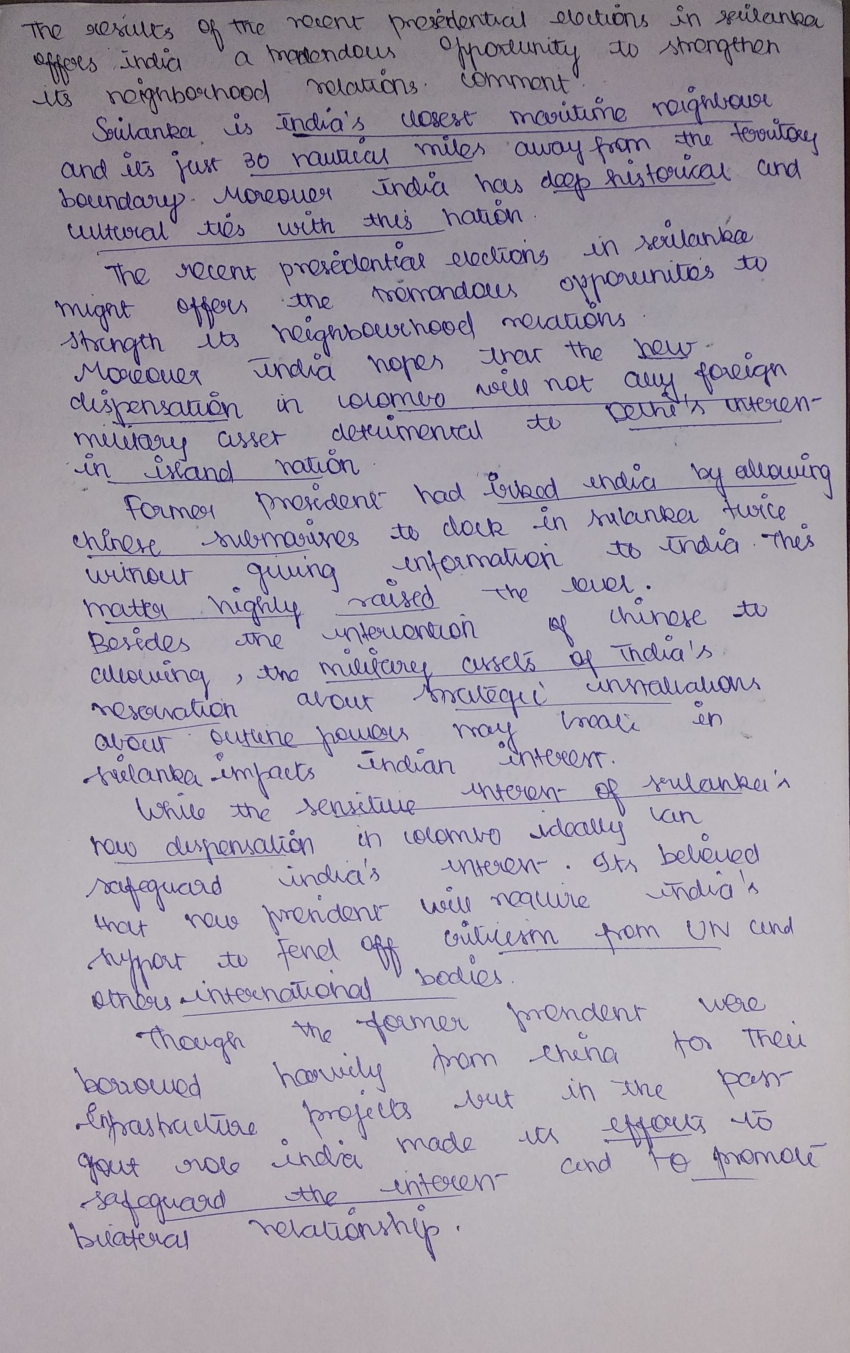 The results of the recent presedential elections in srilanka
offers india a opportunity to strengthen
its neighborhood relations. comment.
Srilanka is India's closest maritime neighbour
and its just 30 nautical miles away from the territory
boundary. Moreover India has deep historical and
cultural ties with this nation.
The recent presedential elections in srilanka
might offers the opportunities to
strength its neighbourhood relations.
Moreover India hopes that the new
dispensation in colombo will not any foreign
military asset detrimental to Delhi's interest
in island nation.
Former president had irked india by allowing
chinese submarines to dock in srilanka twice
without giving information to India. This
matter highly raised the level.
Besides the intervention of chinese to
allowing, the military assets of India's
reservation about strategic installations
about outline powers may locate in
srilanka impacts indian interest.
While the sensitive interest of srilanka's
new dispensation in colombo ideally can
safeguard india's interest. Its believed
that new president will require india's
support to fend off criticism from UN and
others international bodies.
Though the former president were
borrowed heavily from china for their
infrastructure projects but in the past
govt india made its efforts to
safeguard the interest and to promote
bilateral relationship.